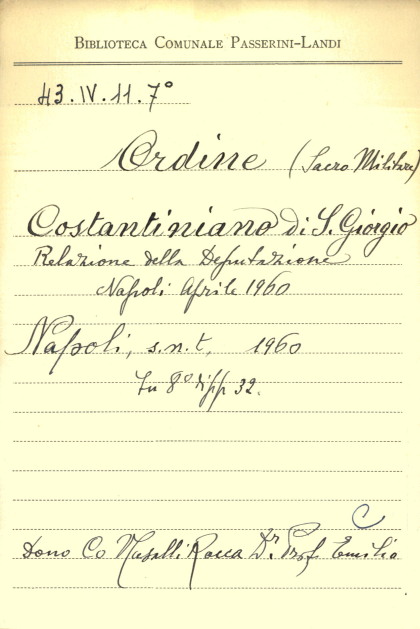 BIBLIOTECA COMUNALE PASSERINI-LANDI
43.IV.11.7°
Ordine (Sacro Militare)
Costantiniano di S. Giorgio
Relazione della Deputazione
Napoli Aprile 1960
Napoli, s.n.t, 1960
In 8° di pp 32.
C
Dono Co Nasalli Rocca Dr. Prof Emilio